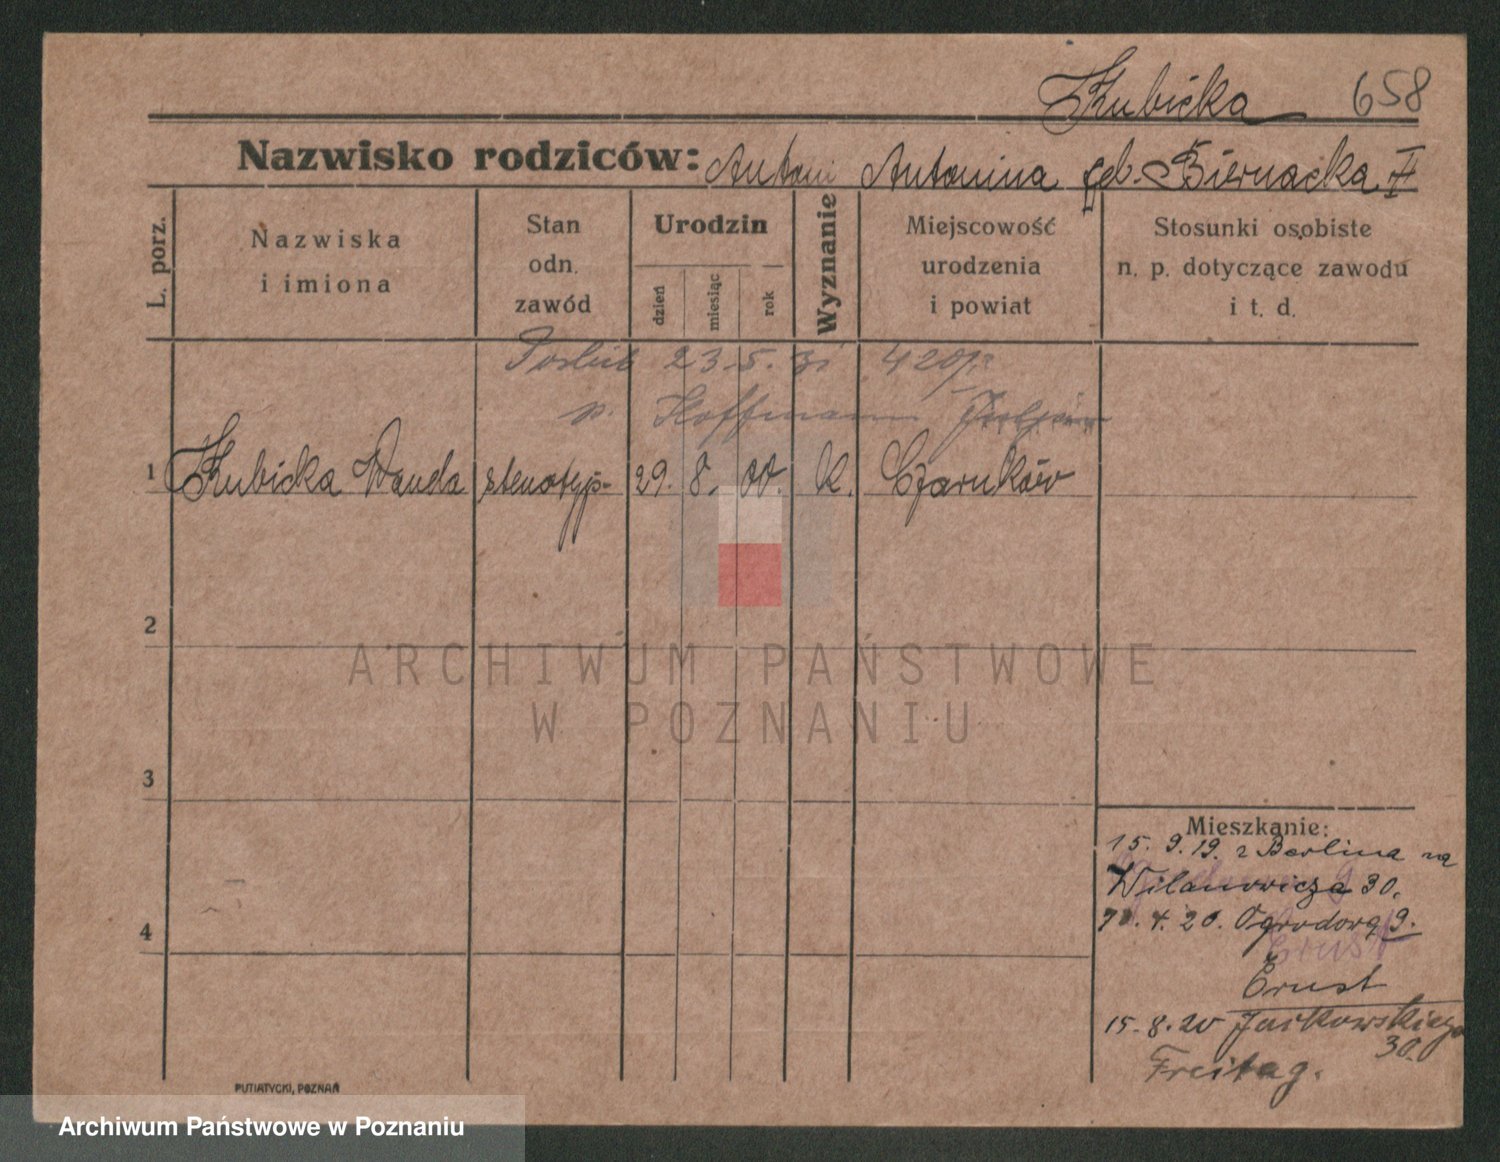 Kubicka 658
Nazwisko rodziców: Antoni Antonina geb. Biernacka II
L. porz.
Nazwiska i imiona
Stan odn. zawód
Urodzin
dzień miesiąc rok
Wyznanie
Miejscowość urodzenia i powiat
Stosunki osobiste n. p. dotyczące zawodu i t. d.
23.5.31
Hoffmann
1 Kubicka Wanda stenotyp- 29. 8. 00. K. Czarnków
2
3
4
ARCHIWUM PAŃSTWOWE
W POZNANIU
Mieszkanie:
15. 9. 19. z Berlina na
30.
4. 20. Ogrodową 9.
Ernst
Ernst
15. 8. 20
30.
Freitag.
PUTIATYCKI, POZNAŃ
Archiwum Państwowe w Poznaniu